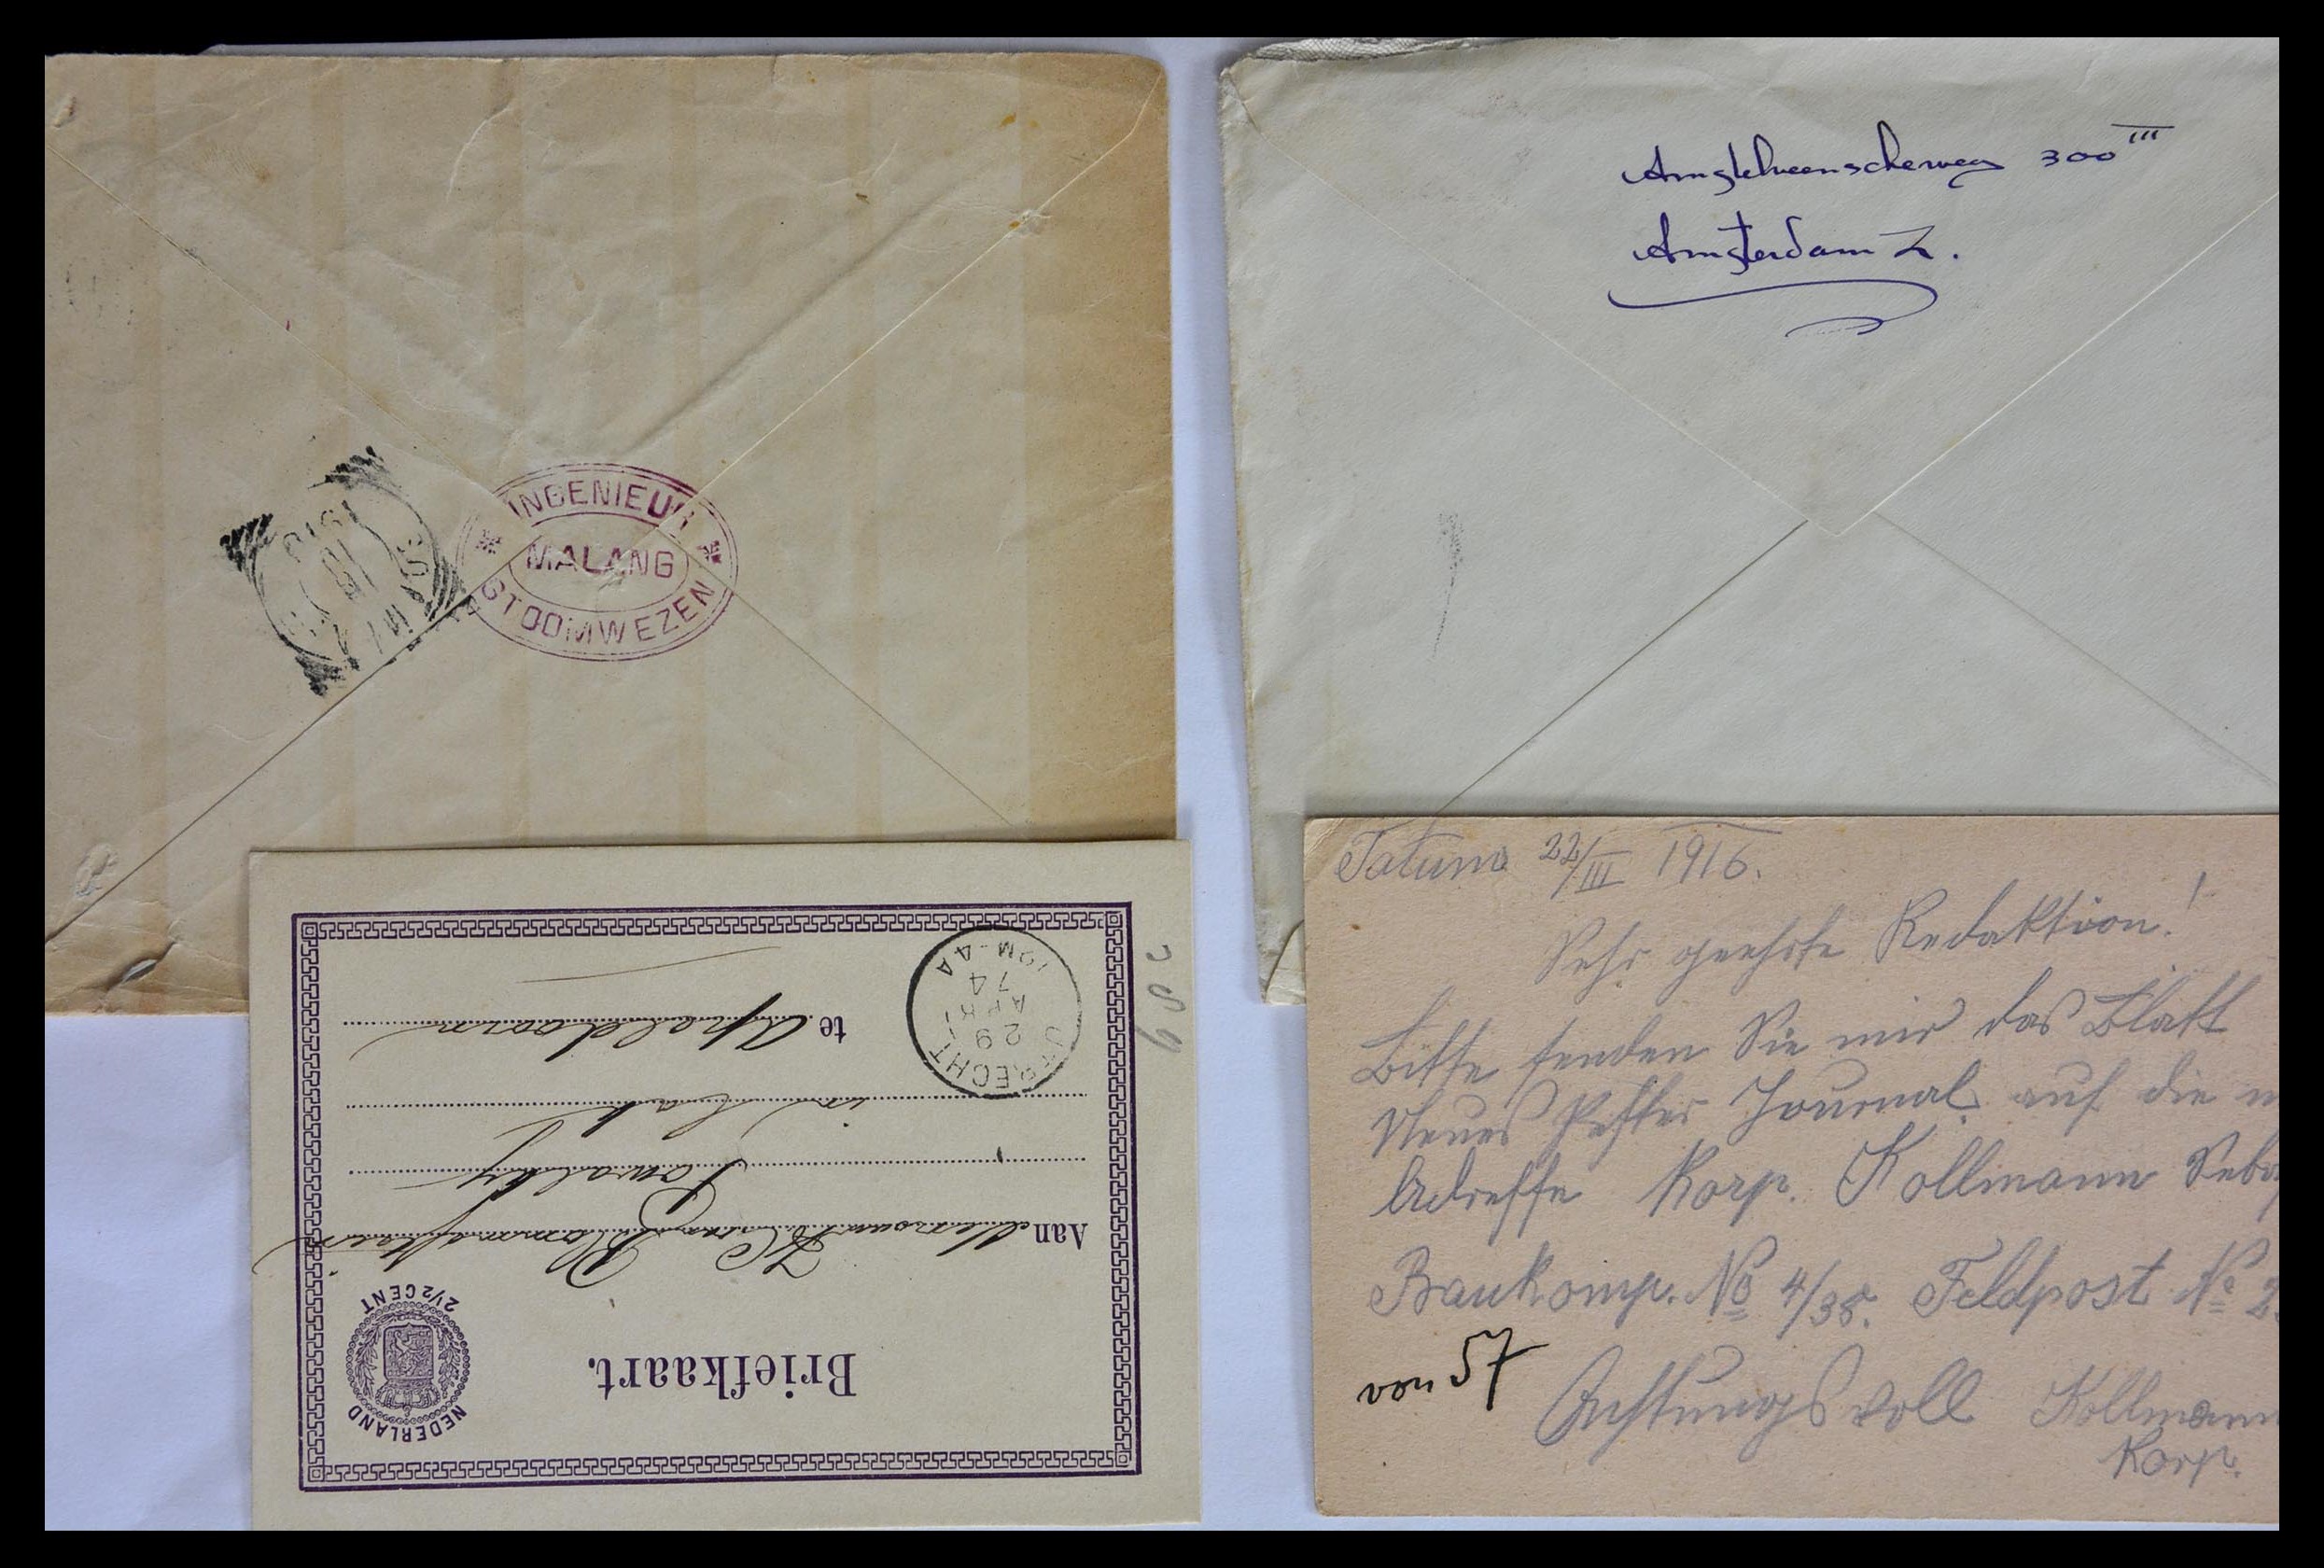 INGENIEUR
MALANG
STOOMWEZEN
Amstelveenscheweg 300 III
Amsterdam Z.
NEDERLAND
2½ CENT
Briefkaart.
Aan Mevrouw
te Apeldoorn
UTRECHT
29
APR
74
10M-4A
Datum 22/III 1916.
Sehr geehrte Redaktion!
Bitte senden Sie mir das Blatt
Neues Pester Journal auf die
Adresse Korp. Kollmann
Baukomp. No 4/38. Feldpost No
von 57
Achtungsvoll Kollmann
Korp.